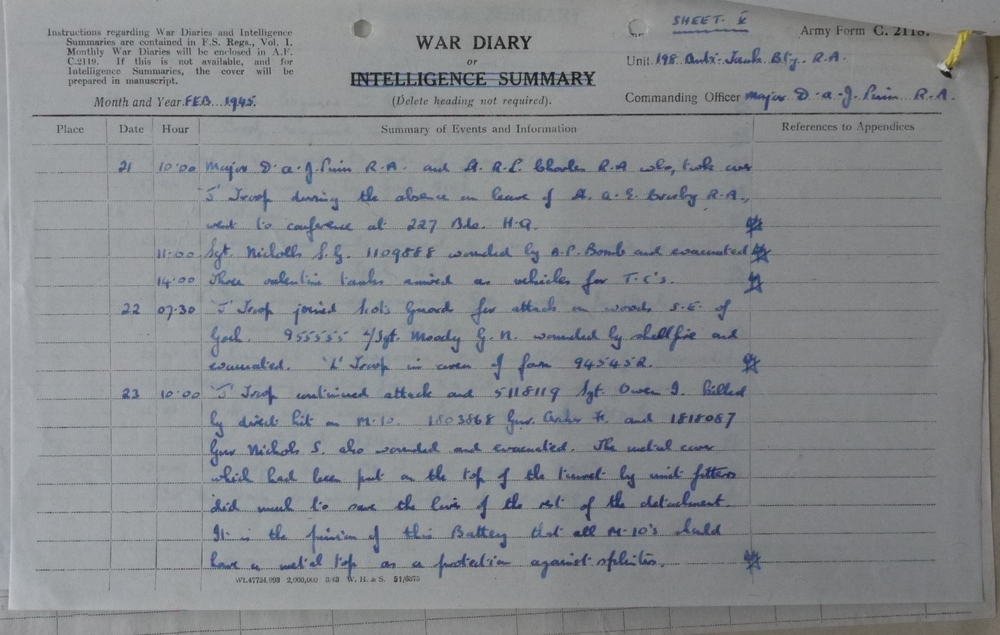 SHEET. V
Instructions regarding War Diaries and Intelligence
Summaries are contained in F.S. Regs., Vol. I.
Monthly War Diaries will be enclosed in A.F.
C.2119. If this is not available, and for
Intelligence Summaries, the cover will be
prepared in manuscript.
Month and Year FEB 1945.
WAR DIARY
or
INTELLIGENCE SUMMARY
(Delete heading not required).
Army Form C. 2118.
Unit 198 Anti-Tank Bty. R.A.
Commanding Officer Major D.A.J. R.A.
Place Date Hour Summary of Events and Information References to Appendices
21 10.00 Major D.A.J. R.A. and Lt. R.L. Charles R.A who, took over
'J' Troop during the absence on leave of Lt. A.E. R.A.,
went to conference at 227 Bde. H.Q.
11.00 Sgt. Nicholls S.G. 1109888 wounded by A.P. Bomb and evacuated
14.00 Three valentine tanks arrived as vehicles for T.C's.
22 07.30 'J' Troop joined Scots Guards for attack on woods S.E. of
Goch. 955555 L/Sgt. Moody G.N. wounded by shellfire and
evacuated. 'L' Troop in area of farm 945452.
23 10.00 'J' Troop continued attack and 5118119 Sgt. Owen I. killed
by direct hit on M-10. 1803868 Gnr. and 1818087
Gnr Nichols S. also wounded and evacuated. The metal cover
which had been put on the top of the turret by unit fitters
did much to save the lives of the rest of the detachment.
It is the opinion of this Battery that all M-10's should
have a metal top as a protection against splinters.
Wt.47724.993 2,000,000 3/43 W. H. & S. 51/6375